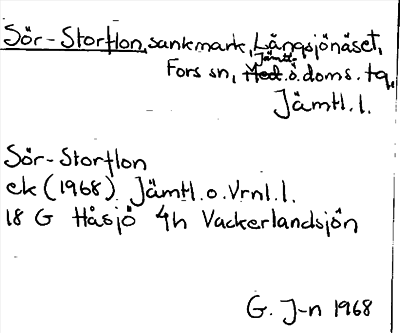 Sör-Storflon, sankmark, Långsjönäset,
Fors sn, Jämtl. ö. doms. tg,
Jämtl. l.
Sör-Storflon
ek (1968) Jämtl. o. Vrnl. l.
18 G Håsjö 4h Vackerlandsjön
G. J-n 1968